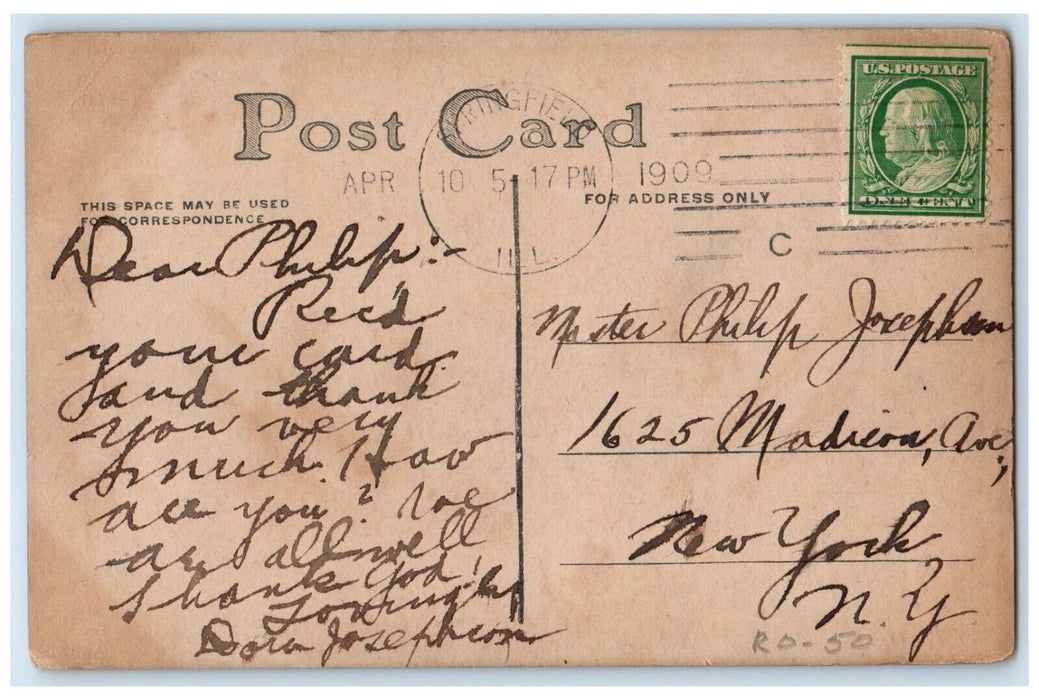 Post Card
U.S. POSTAGE
ONE CENT
SPRINGFIELD
APR 10 5-17 PM 1909
ILL.
C
THIS SPACE MAY BE USED
FOR CORRESPONDENCE
FOR ADDRESS ONLY
Dear Philip:-
Rec'd
your card
and thank
you very
much. How
are you? We
are all well
thanks God.
Lovingly
Dora Josephson
Master Philip Josephson
1625 Madison, Ave,
New York
N.Y
RO-50